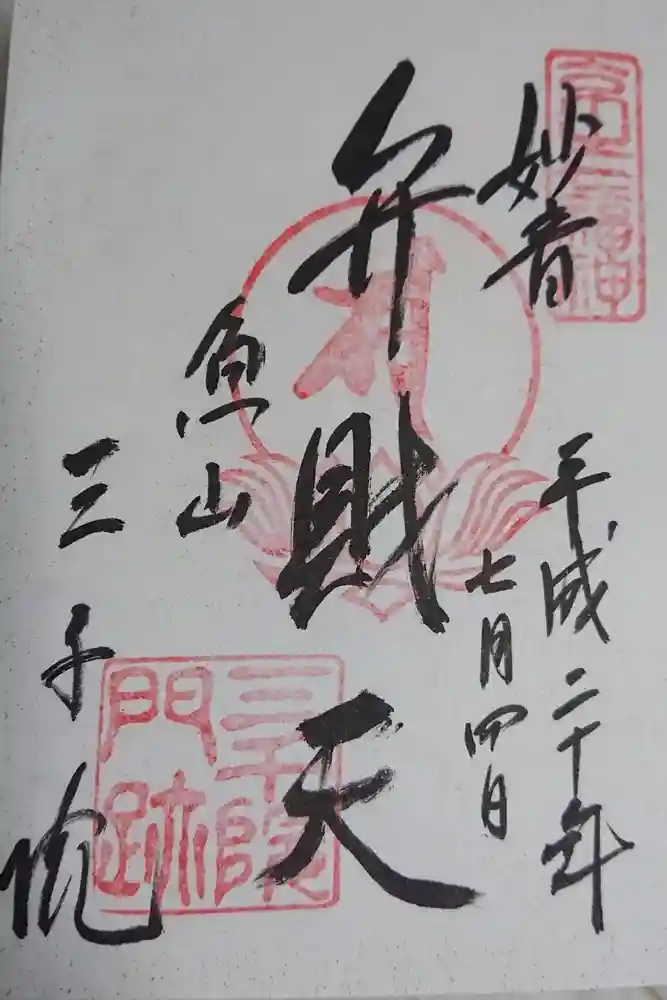 京七福神
妙音
平成二十年
七月四日
弁財天
魚山
三千院
三千院
門跡